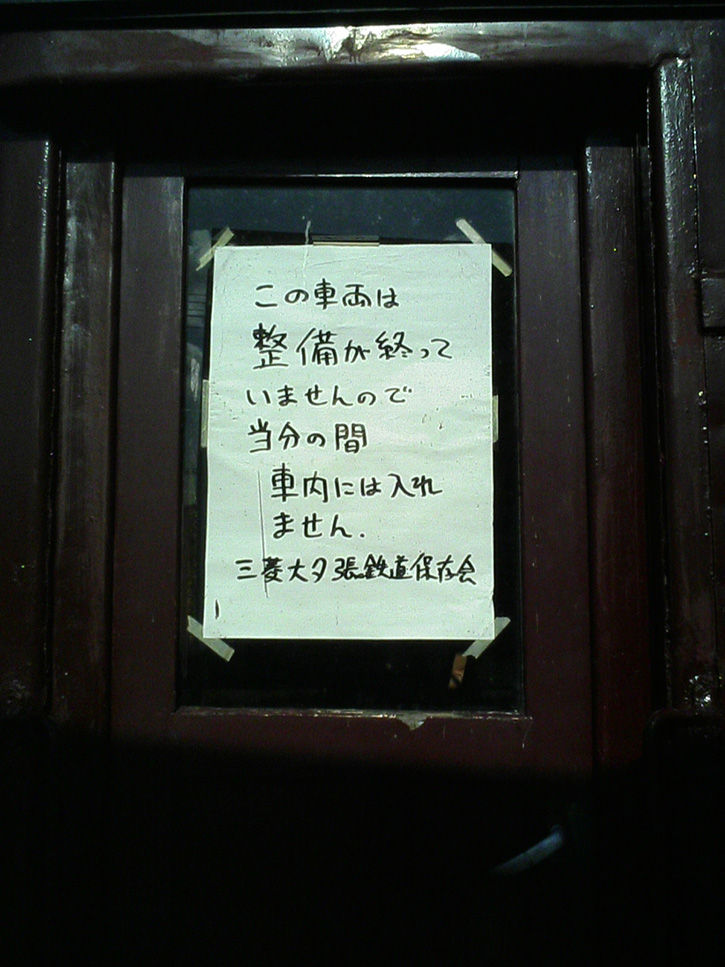 この車両は
整備が終って
いませんので
当分の間
車内には入れ
ません.
三菱大夕張鉄道保存会